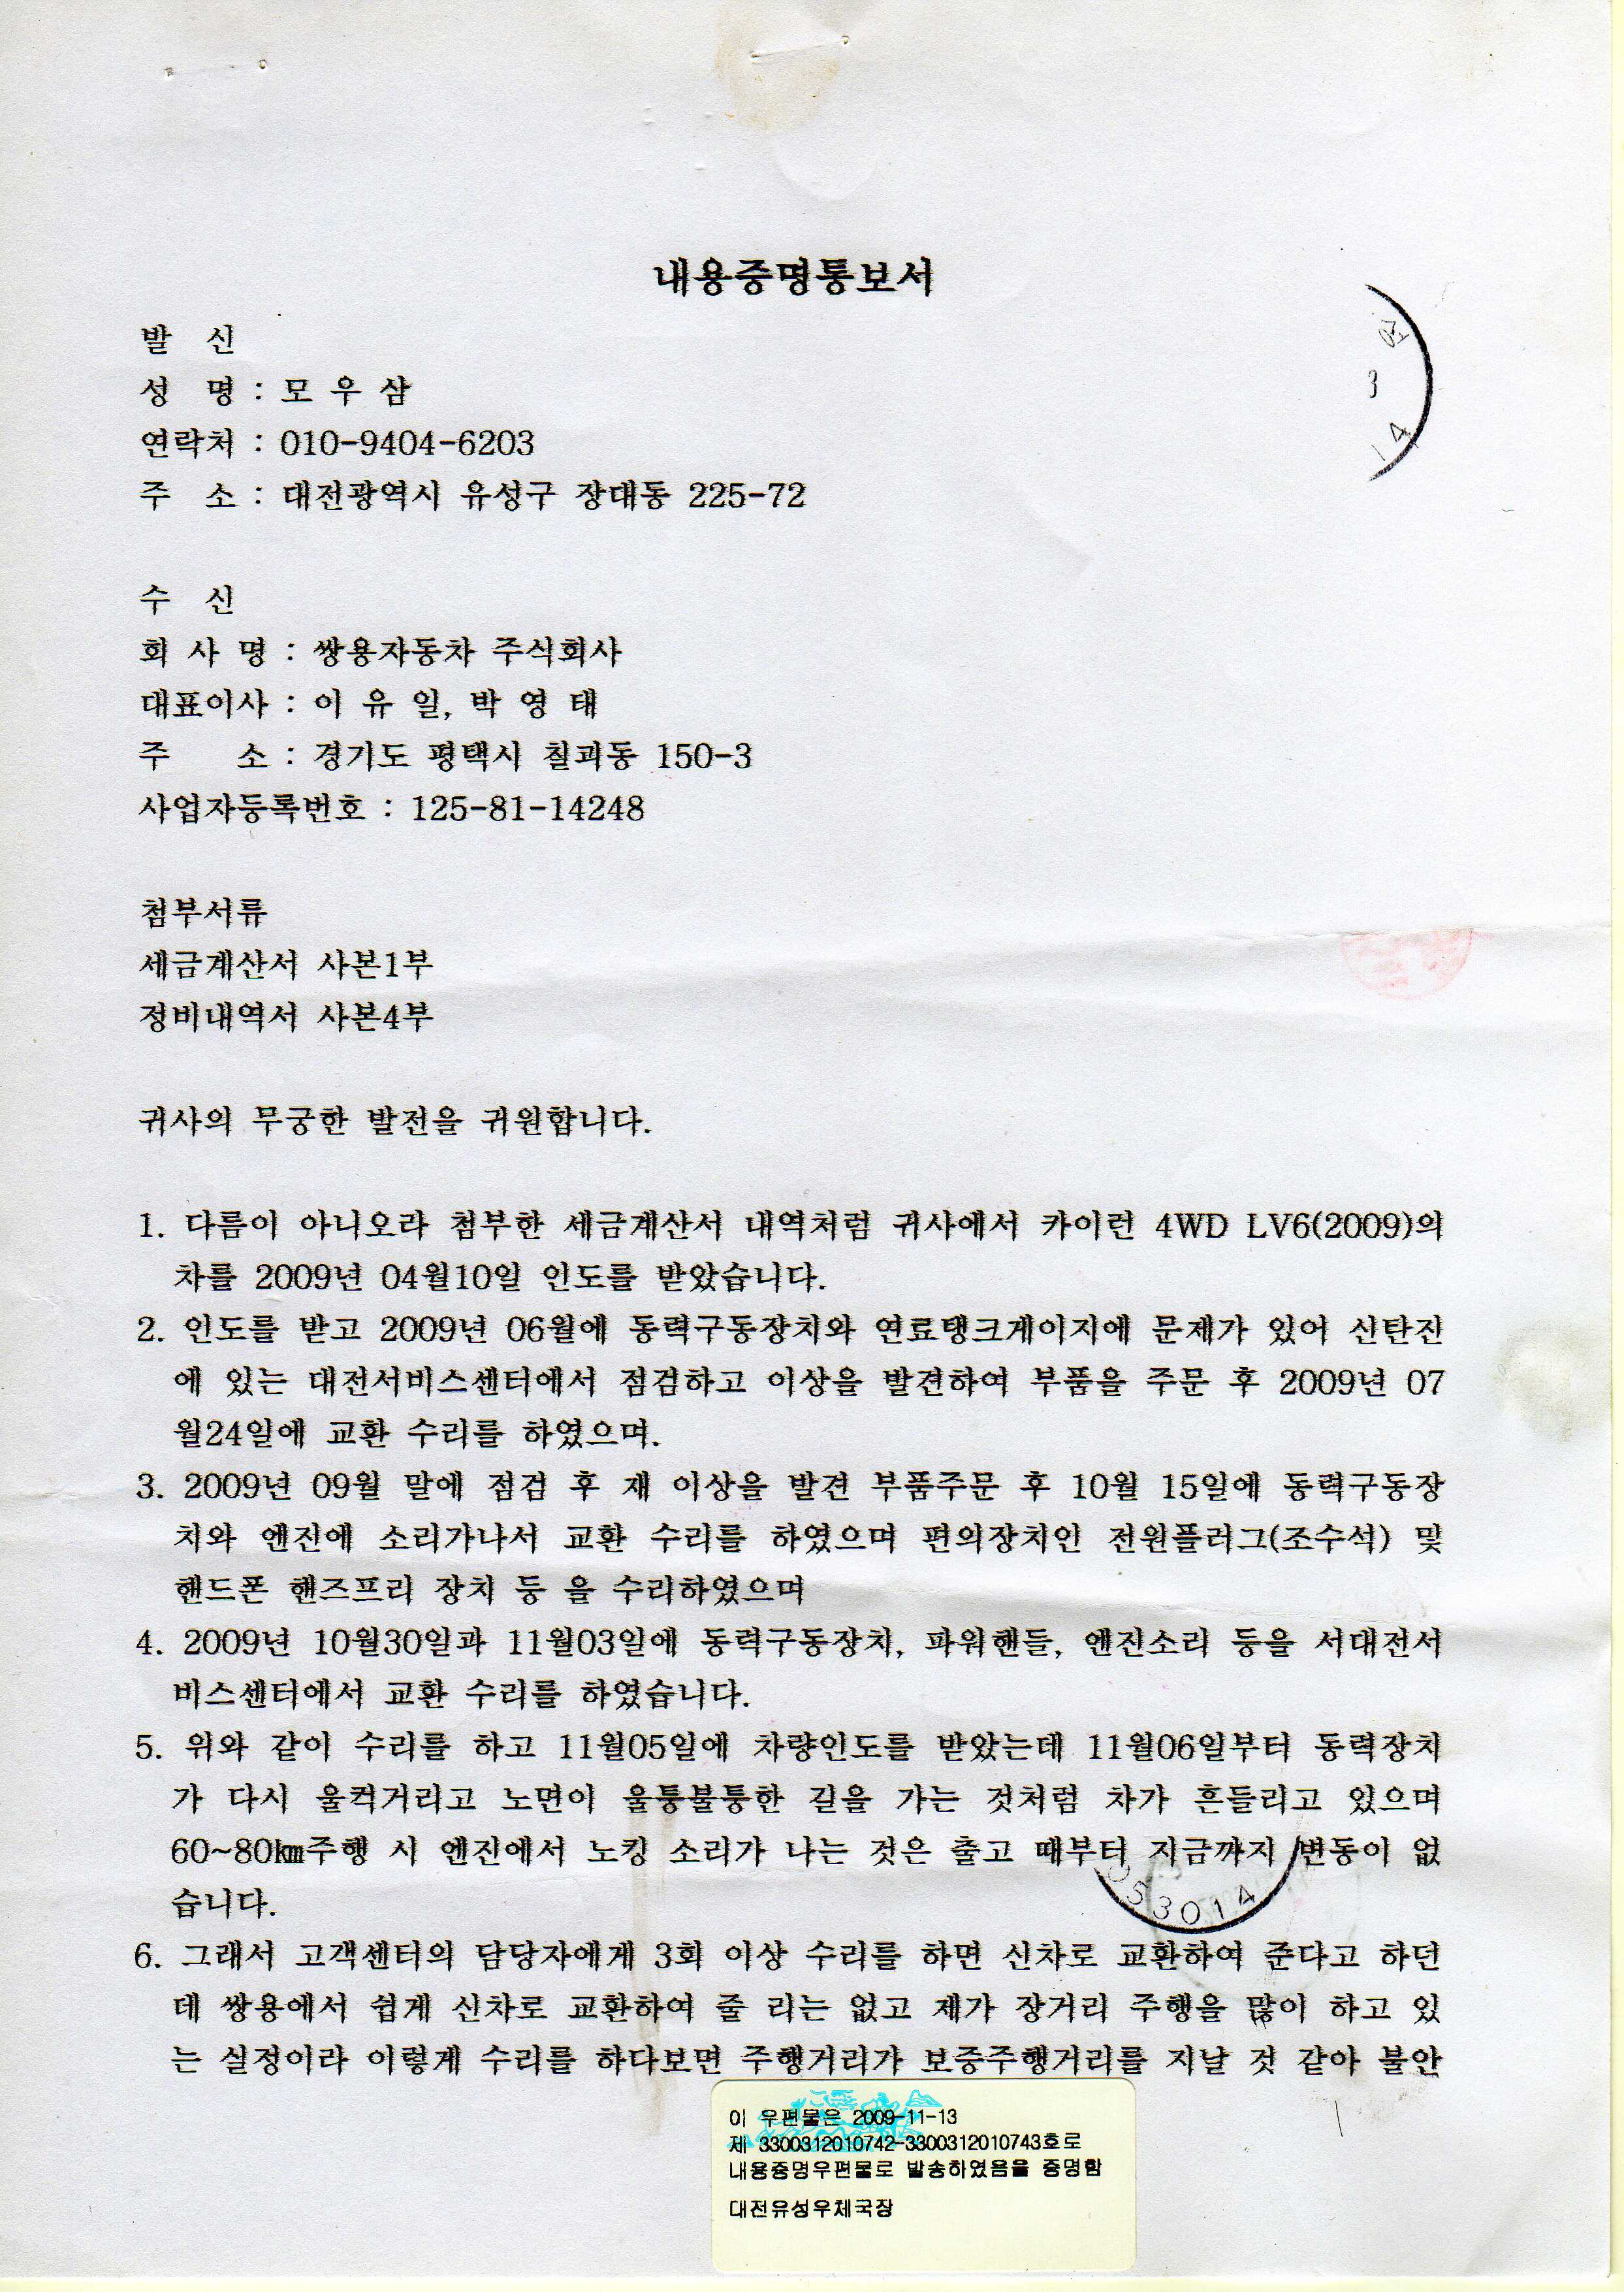 내용증명통보서
발 신
성 명 : 모 우 삼
연락처 : 010-9404-6203
주 소 : 대전광역시 유성구 장대동 225-72
수 신
회 사 명 : 쌍용자동차 주식회사
대표이사 : 이 유 일, 박 영 태
주 소 : 경기도 평택시 칠괴동 150-3
사업자등록번호 : 125-81-14248
첨부서류
세금계산서 사본1부
정비내역서 사본4부
귀사의 무궁한 발전을 귀원합니다.
1. 다름이 아니오라 첨부한 세금계산서 내역처럼 귀사에서 카이런 4WD LV6(2009)의
차를 2009년 04월10일 인도를 받았습니다.
2. 인도를 받고 2009년 06월에 동력구동장치와 연료탱크게이지에 문제가 있어 신탄진
에 있는 대전서비스센터에서 점검하고 이상을 발견하여 부품을 주문 후 2009년 07
월24일에 교환 수리를 하였으며.
3. 2009년 09월 말에 점검 후 재 이상을 발견 부품주문 후 10월 15일에 동력구동장
치와 엔진에 소리가나서 교환 수리를 하였으며 편의장치인 전원플러그(조수석) 및
핸드폰 핸즈프리 장치 등 을 수리하였으며
4. 2009년 10월30일과 11월03일에 동력구동장치, 파워핸들, 엔진소리 등을 서대전서
비스센터에서 교환 수리를 하였습니다.
5. 위와 같이 수리를 하고 11월05일에 차량인도를 받았는데 11월06일부터 동력장치
가 다시 울컥거리고 노면이 울퉁불퉁한 길을 가는 것처럼 차가 흔들리고 있으며
60~80㎞주행 시 엔진에서 노킹 소리가 나는 것은 출고 때부터 지금까지 변동이 없
습니다.
53014
6. 그래서 고객센터의 담당자에게 3회 이상 수리를 하면 신차로 교환하여 준다고 하던
데 쌍용에서 쉽게 신차로 교환하여 줄 리는 없고 제가 장거리 주행을 많이 하고 있
는 실정이라 이렇게 수리를 하다보면 주행거리가 보증주행거리를 지날 것 같아 불안
이 우편물은 2009-11-13
제 3300312010742-3300312010743호로
내용증명우편물로 발송하였음을 증명함
대전유성우체국장